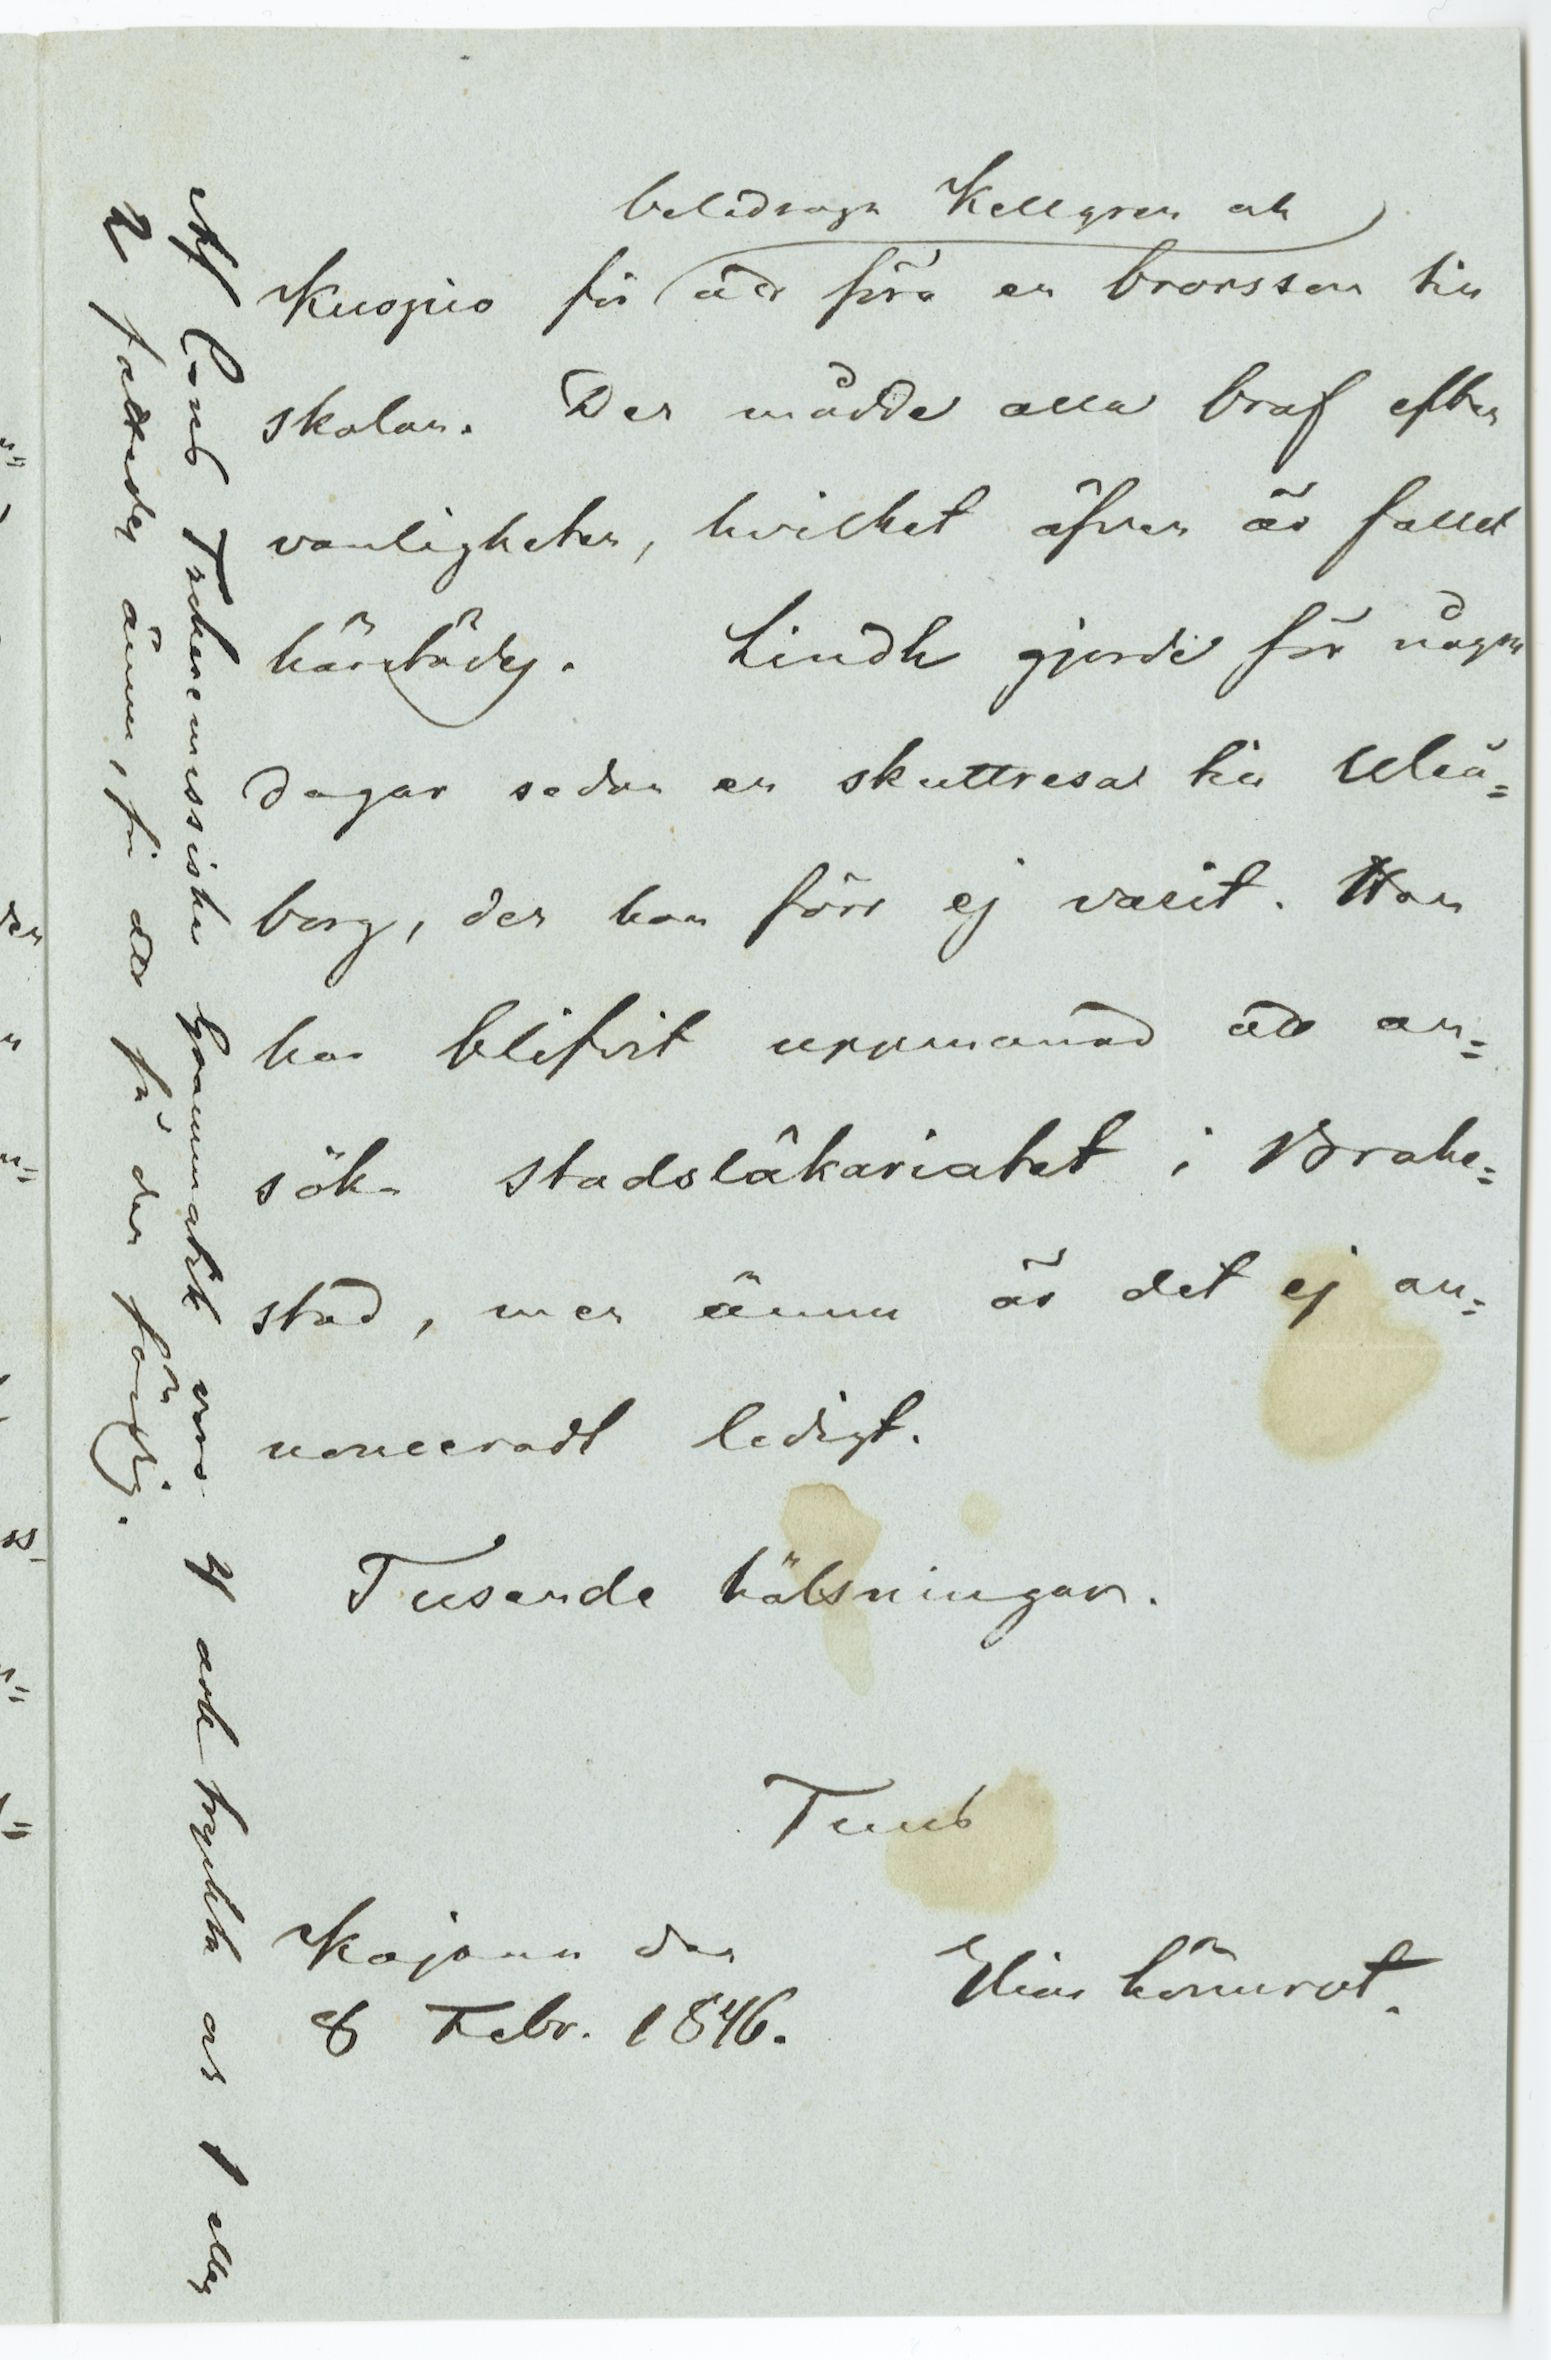 beledsaga Kellgren och
Kuopio för att föra en brorsson till
skolan. Der mådde alla braf efter
vanligheten, hvilket äfven är fallet
härstädes. Lindh gjorde för några
dagar sedan en skuttresa till Uleå=
borg, der han förr ej varit. Han
har blifvit uppmanad att an=
söka stadsläkariatet i Brahe=
stad, men ännu är det ej an=
nonceradt ledigt.
Tusende hälsningar.
Tuus
Kajana den
8 Febr. 1846.
Elias Lönnrot.
Af Cast's Tscheremissiska Grammatik voro 4 ark tryckta och 1 eller
2 fattades ännu, för att få den färdig.